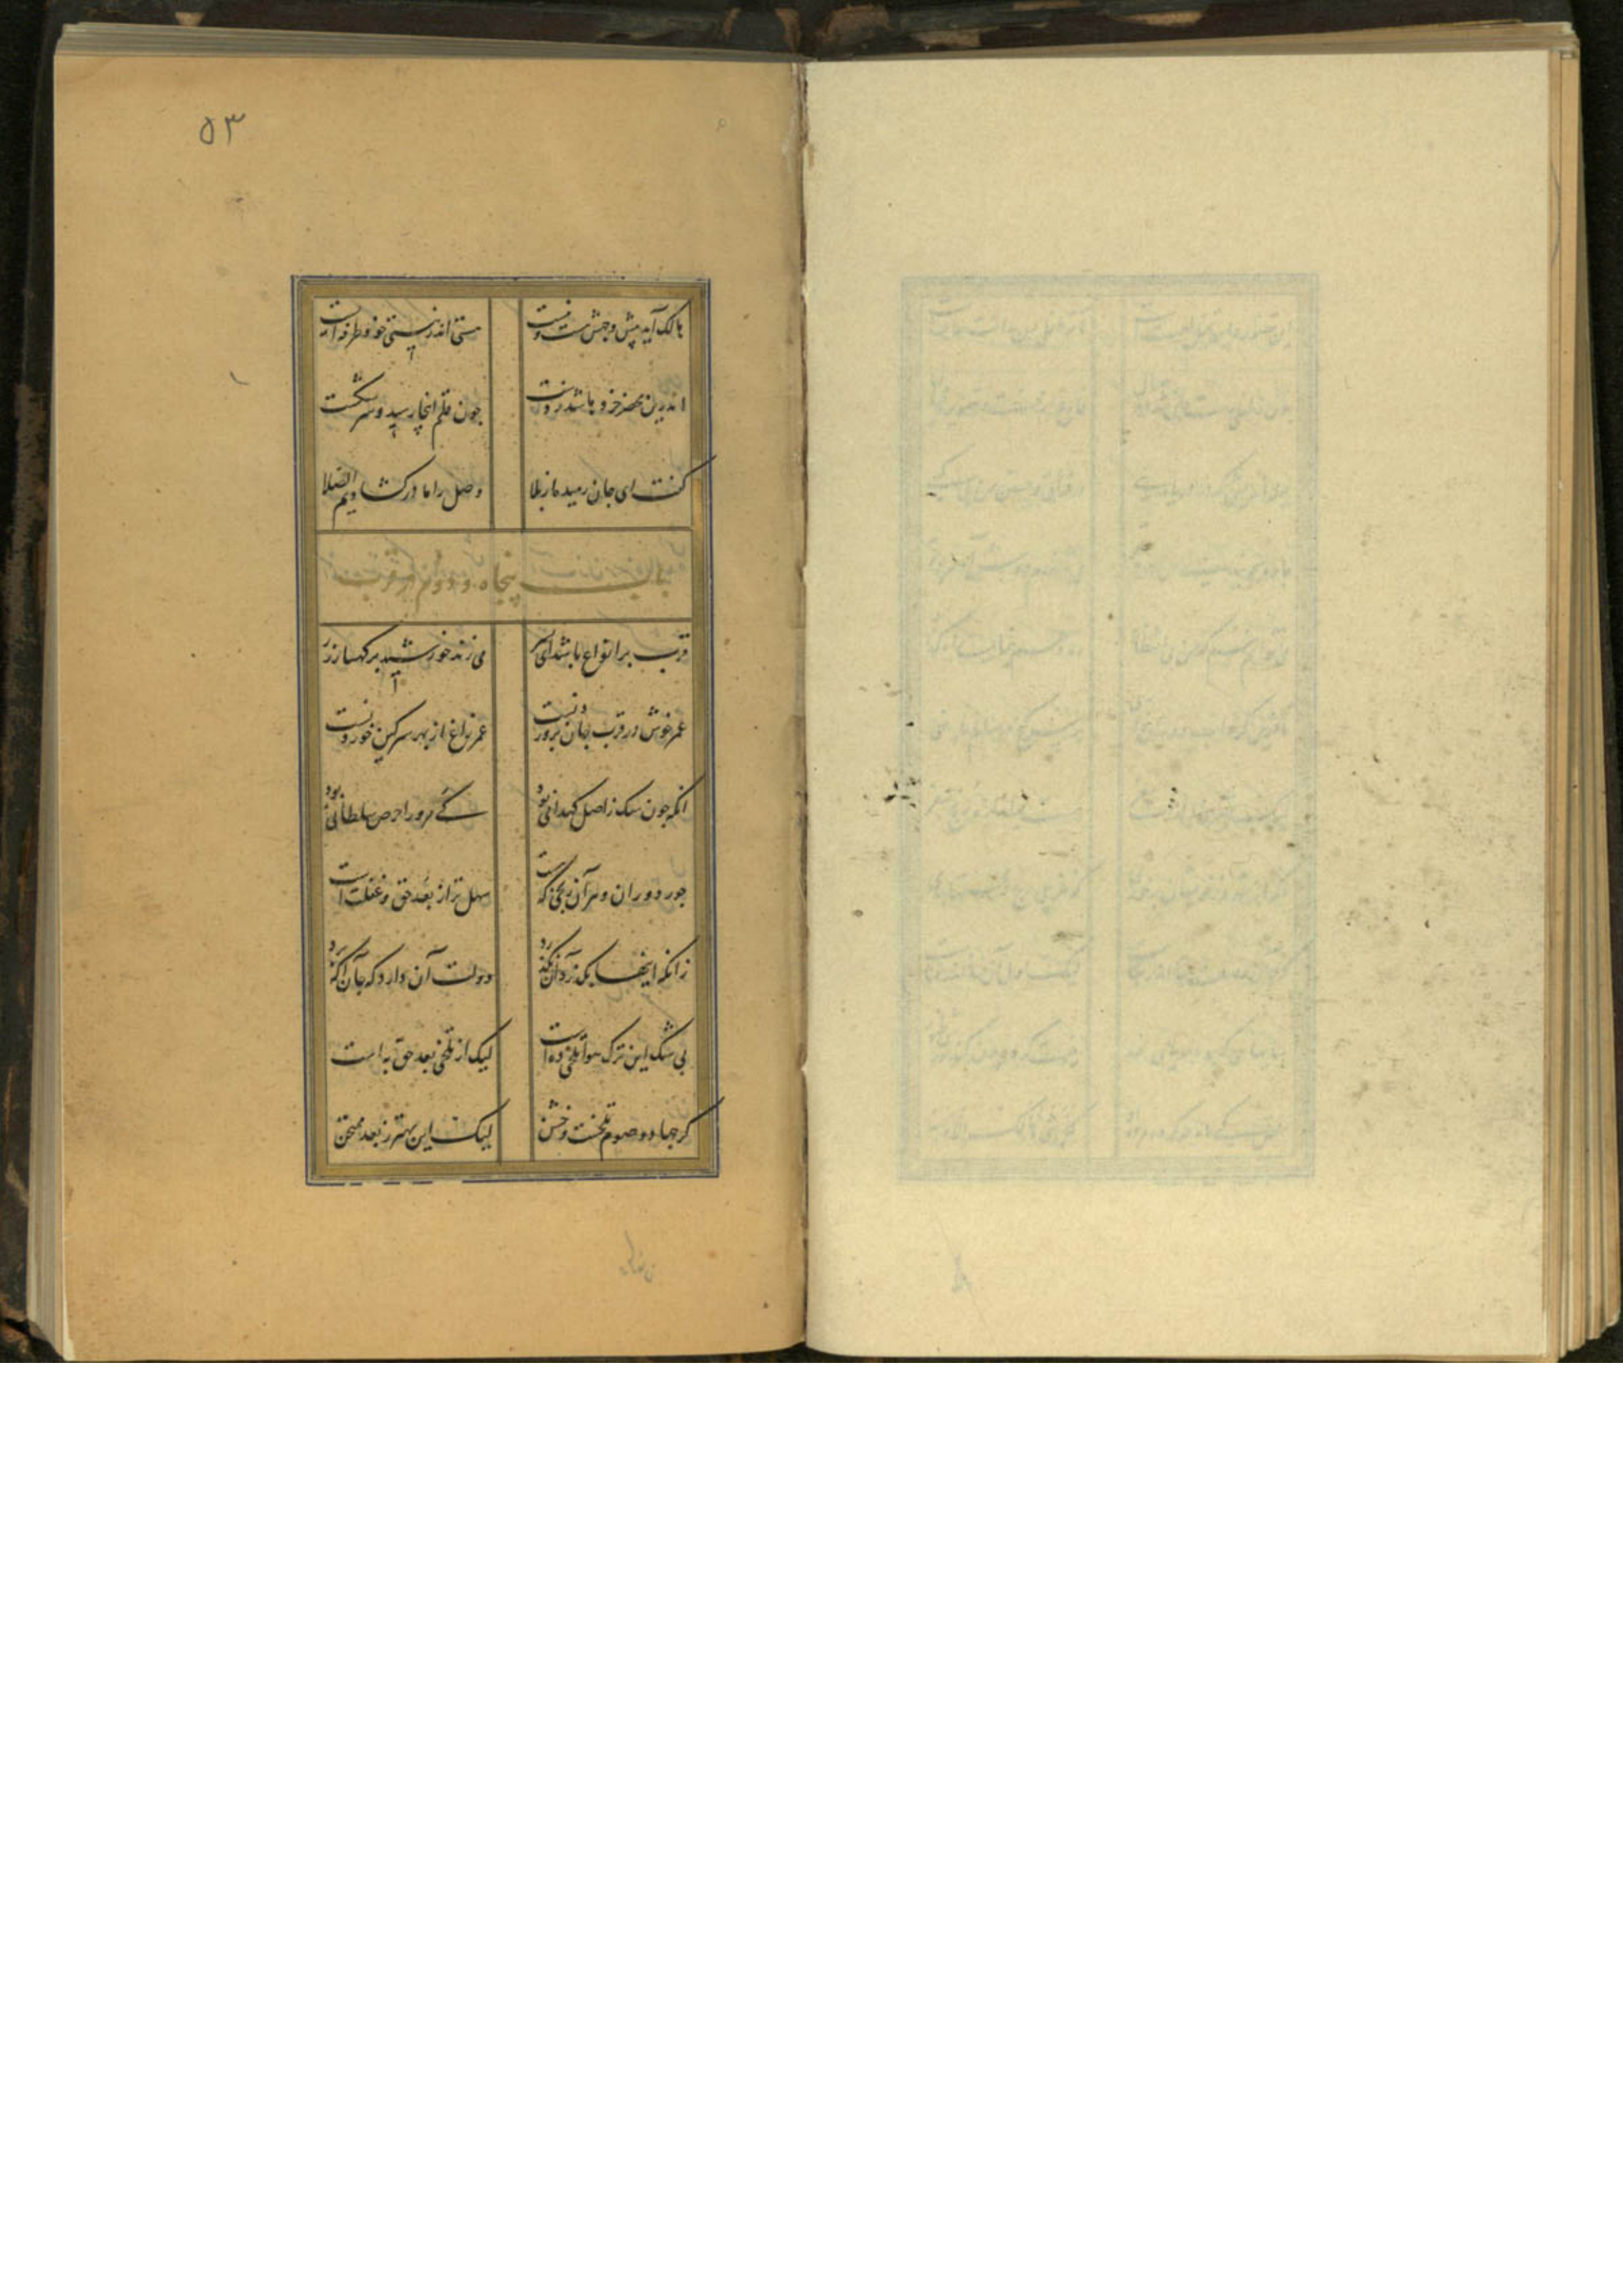 ۵۳
هالک آید پیش وجهش هست و نیست هستی اندر نیستی خود طرفه ایست
اندرین محضر خرد باشد ز دست چون قلم اینجا رسید و سر شکست
گفت ای جان رمیده از بلا وصل را ما در کشادیم الصلا
باب پنجاه و دوم در قرب
قرب بر انواع باشد ای پسر می زند خورشید بر کهسار زر
عمر خوش در قرب جان پروردنست عمر زاغ از بهر سرکین خوردنست
انکه چون سک ز اصل کهدانی بود کی مرورا حرص سلطانی بود
جور دوران و هر آن رنجی که هست سهل تر از بعد حق و غفلت است
زانکه اینها بکذرد آن نکذرد دولت آن دارد که جان آکه برد
بی شک این ترک هوا تلخی ده است لیک از تلخی بعد حق به است
کر جهاد و صوم تلخست و خشن لیک این بهتر ز بعد ممتحن